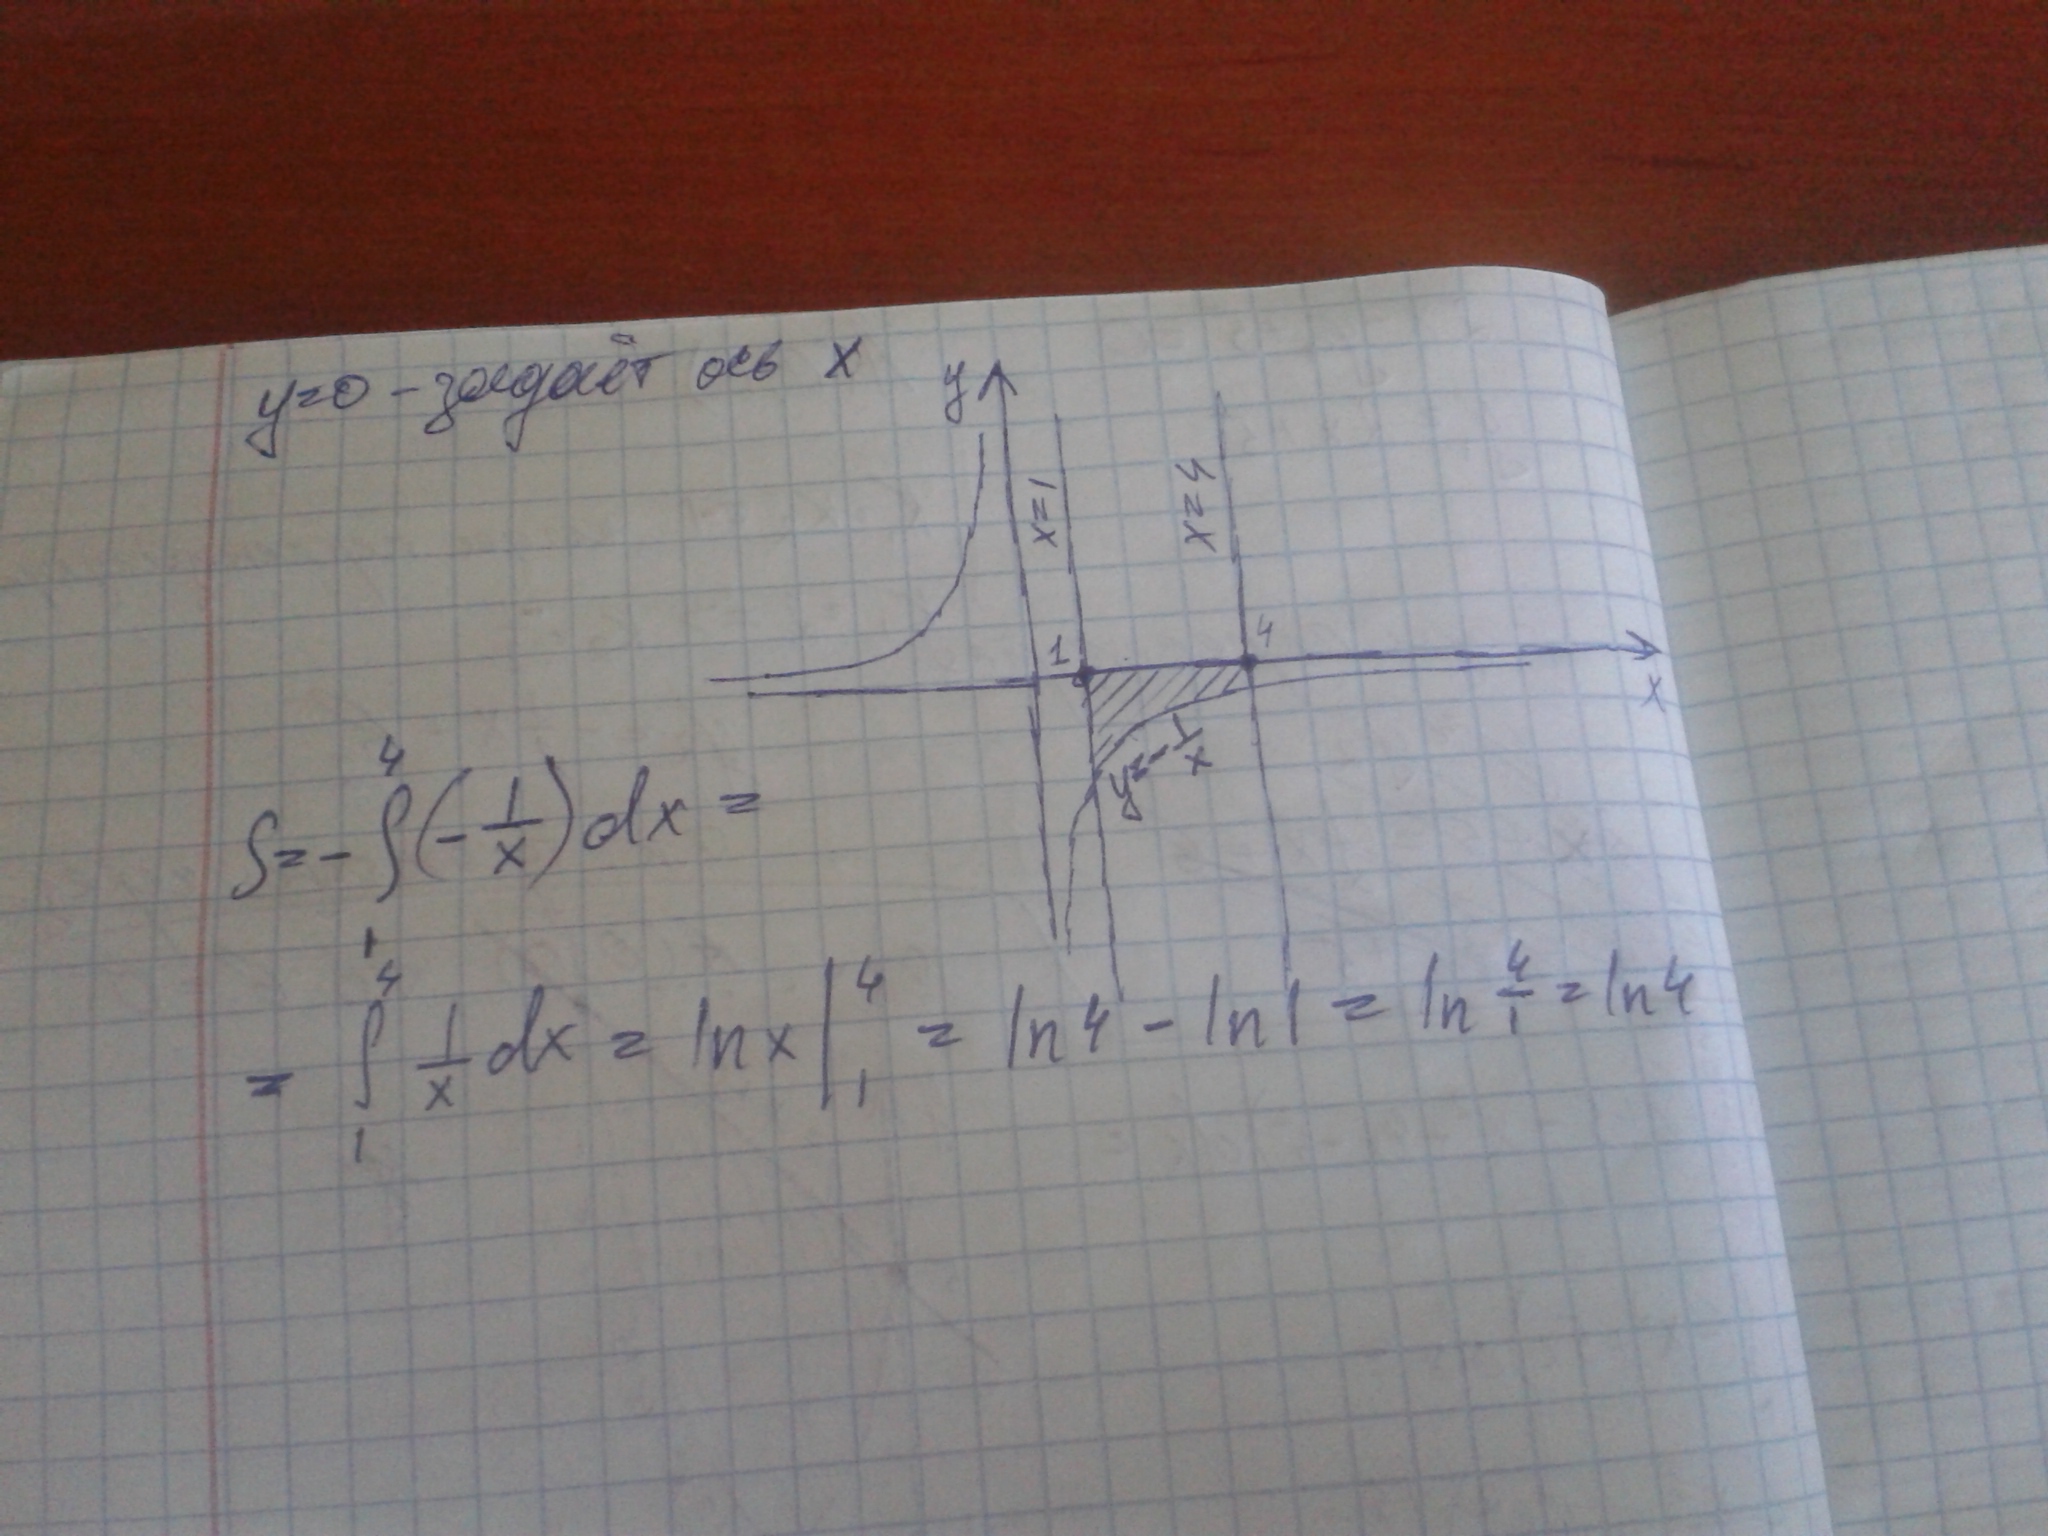 y=0 – задаёт ось x
y
x=1
x=4
1
4
x
y=-1/x
S=-∫₁⁴(-1/x)dx=
=∫₁⁴ 1/x dx = ln x|₁⁴ = ln4 - ln1 = ln 4/1 = ln4